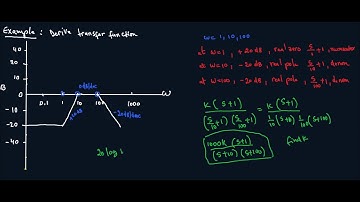 Example: Derive transfer function
w = 1, 10, 100
at w=1, +20dB, real zero s/1+1, numerator
at w=10, -20dB, real pole s/10+1, denom
at w=100, -20dB, real pole s/100+1, denom
40
20
0
-20
-40
B
0.1 1 10 100 1000
w
0dB/dec
-20dB/dec
20 log
k(s+1)
(s/10+1)(s/100+1)
=
k(s+1)
1/10(s+10) 1/100(s+100)
1000k(s+1)
(s+10)(s+100)
find k